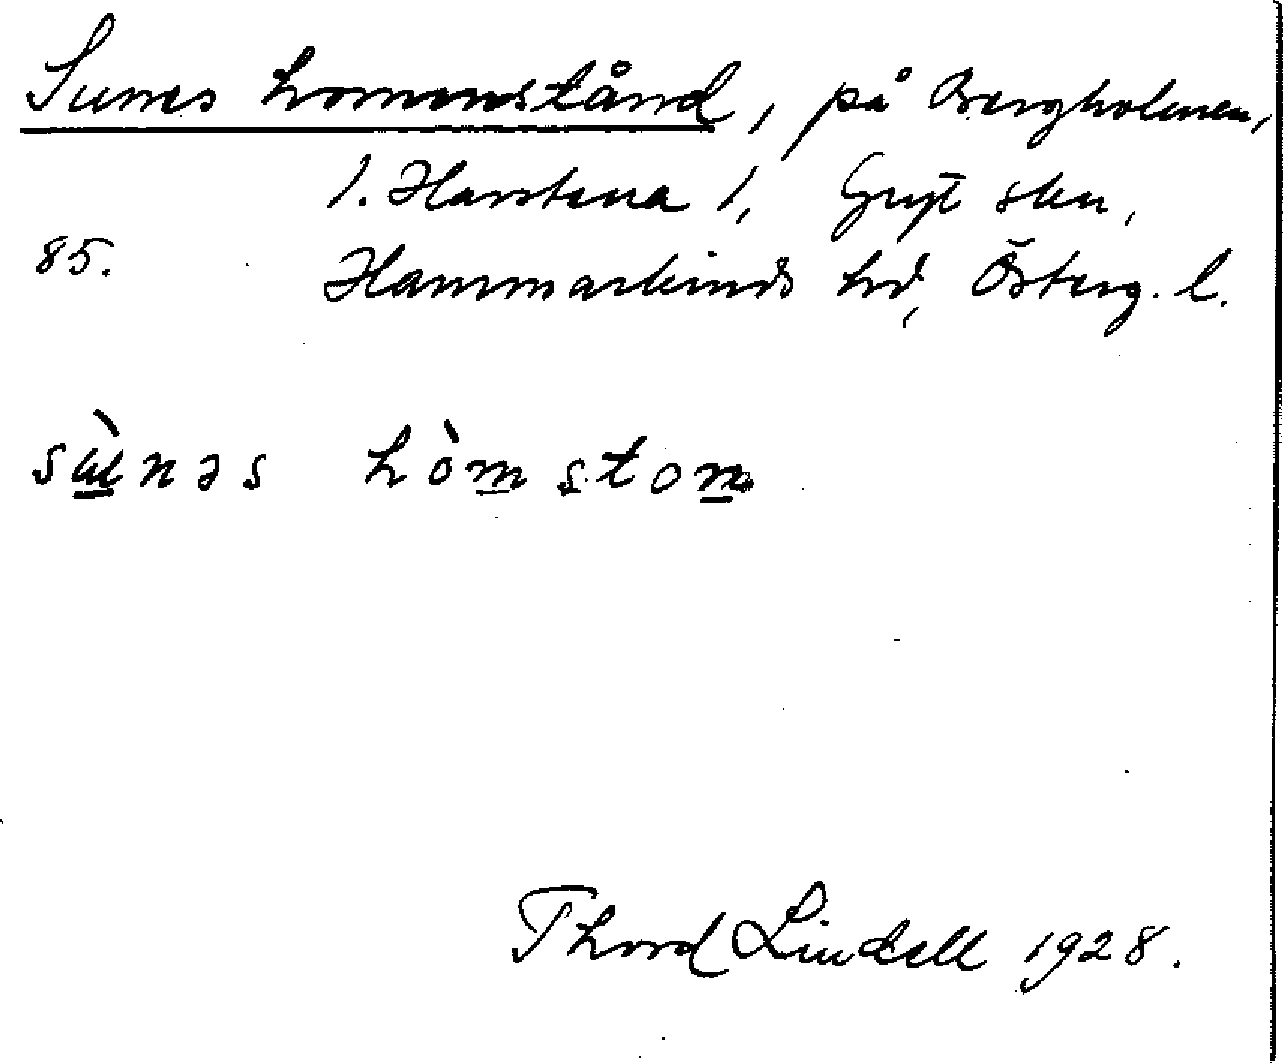 Sunes hommenstånd, på Bergholmen,
1. Harstena 1, Gryt skn,
85. Hammarkinds hd, Österg. l.
sùnəs hòmston
Thord Lindell 1928.